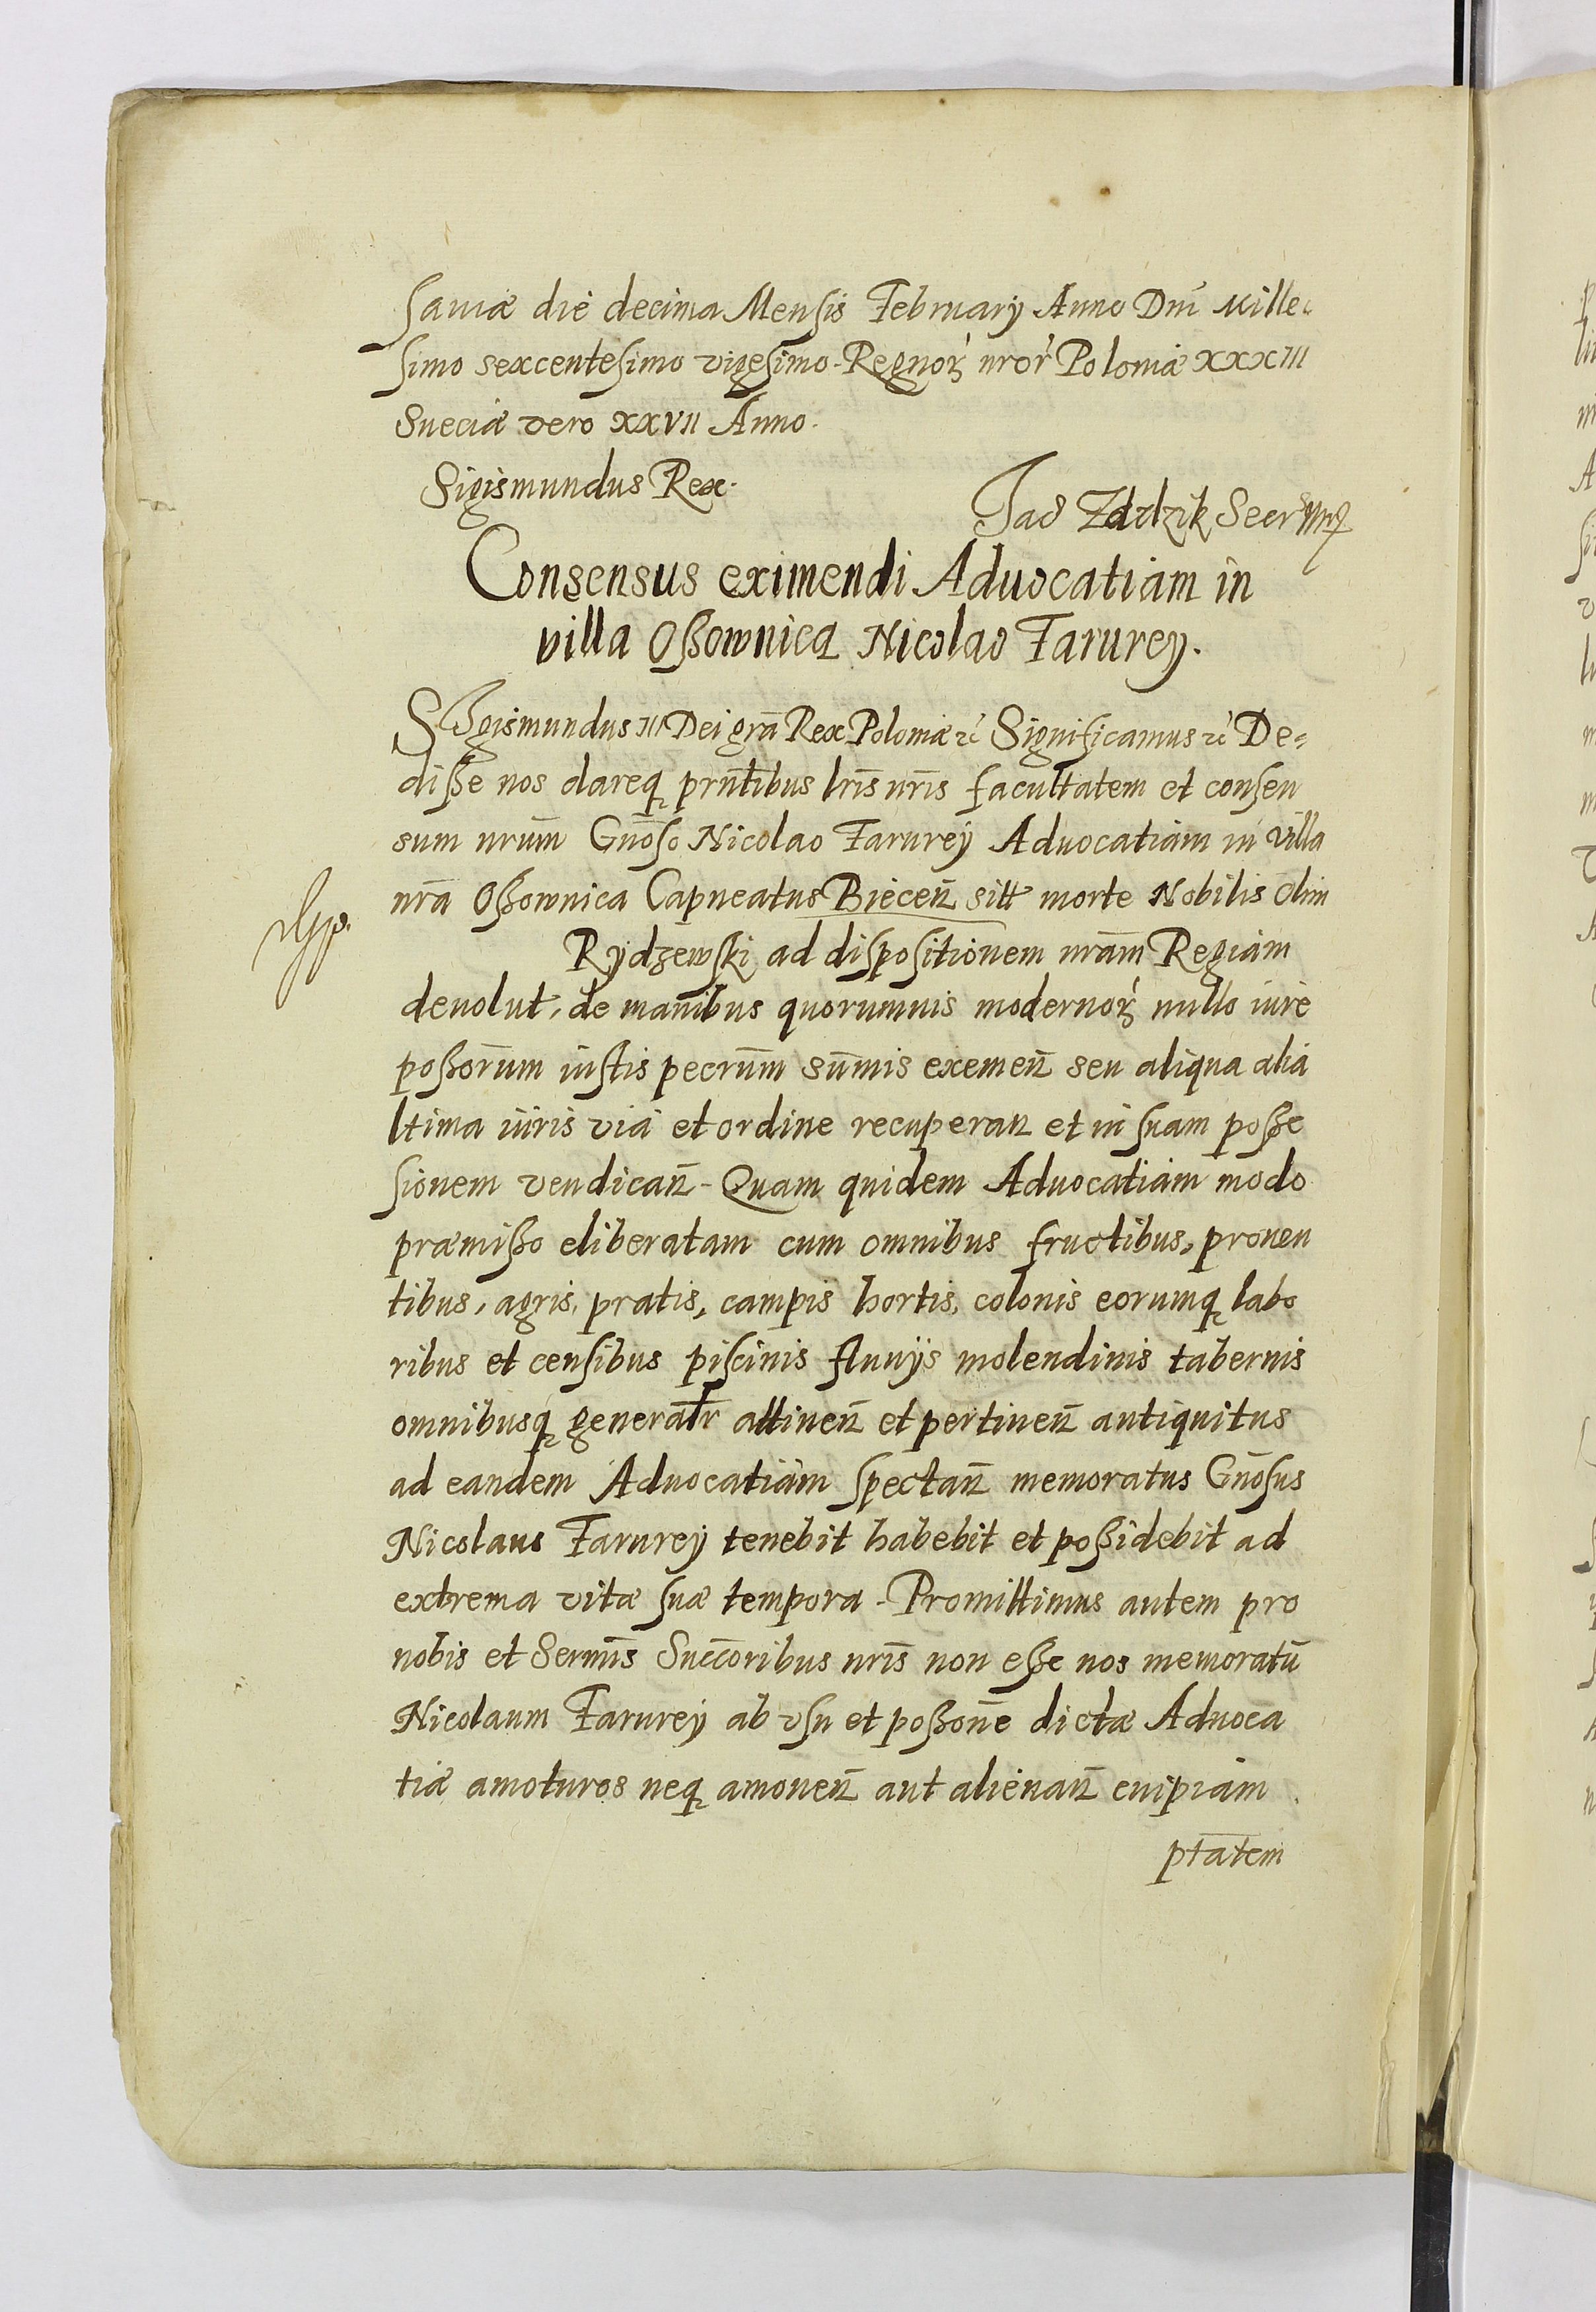 saviæ die decima Mensis February Anno Dni Mille
simo sexcentesimo vigesimo. Regnor nror Poloniæ XXXIII
Sueciæ vero XXVII Anno.
Sigismundus Rex.
Zadzik Secr
Consensus eximendi Aduocatiam in
villa Oßownica Nicolao Tarurey.
SIgismundus III Dei gra Rex Poloniæ Significamus De=
diße nos dareq prntibus lris nris facultatem et consen
sum nrum Gnoso Nicolao Tarurey Aduocatiam in villa
nra Oßownica Capneatus Biecen sitt morte Nobilis olim
Rydzewski ad dispositionem nram Regiam
deuolut, de manibus quorumuis modernor nullo iure
poßorum iustis pecrum summis exemen seu aliqua alia
ltima iuris via et ordine recuperan et in suam poße
sionem vendican. Quam quidem Aduocatiam modo
præmißo eliberatam cum omnibus fructibus, prouen
tibus, agris, pratis, campis hortis, colonis eorumq labo
ribus et censibus piscinis fluuijs molendinis tabernis
omnibusq generaltr attinen et pertinen antiquitus
ad eandem Aduocatiam spectan memoratus Gnosus
Nicolaus Tarurey tenebit habebit et poßidebit ad
extrema vitæ suæ tempora. Promittimus autem pro
nobis et Sermis Succoribus nris non eße nos memoratū
Nicolaum Tarurey ab vsu et poßone dictæ Aduoca
tiæ amoturos neq amouen aut alienan cuipiam
ptatem